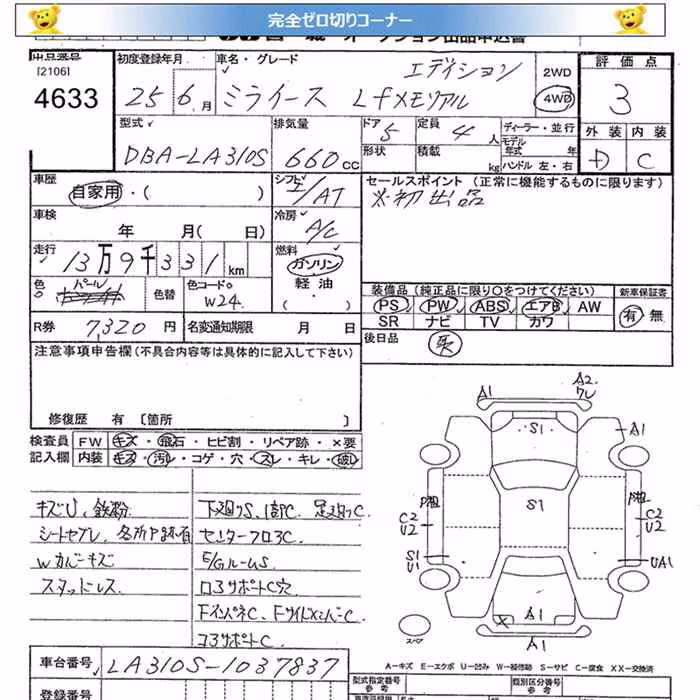 完全ゼロ切りコーナー
[2106]
4633
初度登録年月
25 6 月
車名・グレード
エディション
ミライース Lfメモリアル
2WD
4WD
評価点
3
外装 内装
D C
型式
DBA-LA310S
排気量
660 cc
ドア 5
形状
定員 4 人
積載 kg
ディーラー・並行
モデル年式 年
ハンドル 左・右
車歴
自家用・( )
シフト
AT
セールスポイント (正常に機能するものに限ります)
※初出品
車検
年 月( 日)
冷房
A/C
走行
13万9千331 km
燃料
ガソリン
軽油
・( )
色
パール
色替
色コードNo
W24
装備品 (純正品に限り○をつけてください)
PS PW ABS エアB AW
SR ナビ TV カワ
新車保証書
有 無
R券 7,320 円
名変通知期限 月 日
後日品
注意事項申告欄 (不具合内容等は具体的に記入して下さい)
修復歴 有 〔箇所 〕
検査員記入欄
FW キズ・飛石・ヒビ割・リペア跡・×要
内装 キズ・汚レ・コゲ・穴・スレ・キレ・破レ
キズU、鉄粉
シートヨゴレ、各所P跡有
Wカバーキズ
スタッドレス
下廻りS、1部C、足廻りC
センターフロアC
E/GルームS
ロアサポートC穴
FインパネC、FサイドメンバーC
コアサポートC
A1
A2
ワレ
S1
A1
S1
C2
U2
S1
U1
C2
U2
UA1
A1
X
A1
スペア
A-キズ E-エクボ U-凹み W-補修跡 S-サビ C-腐食 XX-交換済
車台番号 LA310S-1037837
登録番号
型式指定番号
参考
類別区分番号
参考